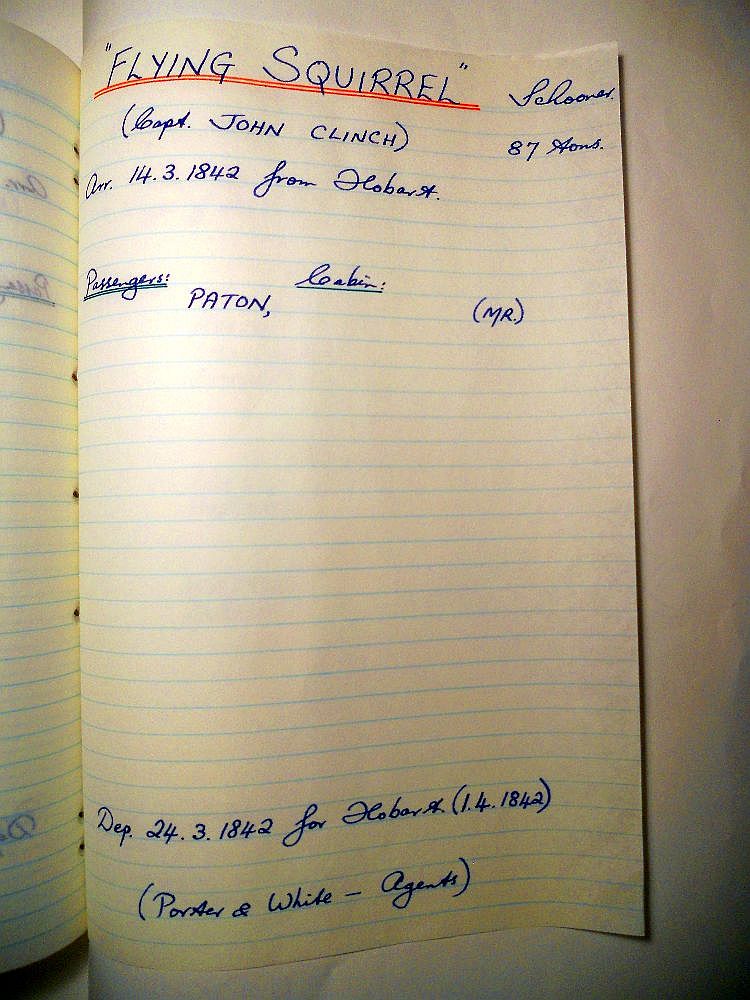 "FLYING SQUIRREL" Schooner.
(Capt. JOHN CLINCH) 87 tons.
Arr. 14.3.1842 from Hobart.
Passengers: Cabin:
PATON, (MR.)
Dep. 24.3.1842 for Hobart. (1.4.1842)
(Porter & White - Agents)